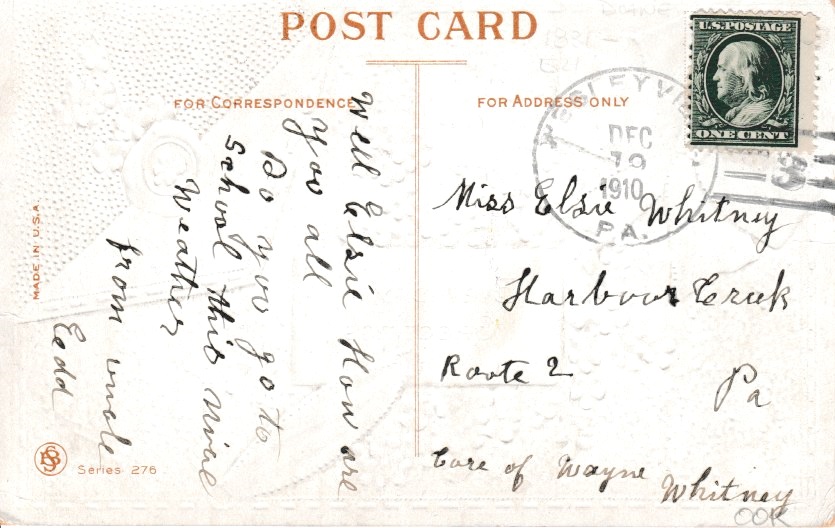 POST CARD
FOR CORRESPONDENCE
FOR ADDRESS ONLY
U.S. POSTAGE
ONE CENT
WESLEYVILLE
DEC
19
1910
PA.
Well Elsie How are
you all
Do you go to
School this nice
Weather
from uncle
Eedd
Miss Elsie Whitney
Harbour Creek
Route 2
Pa
Care of Wayne
Whitney
MADE IN U.S.A.
Series 276
OOK